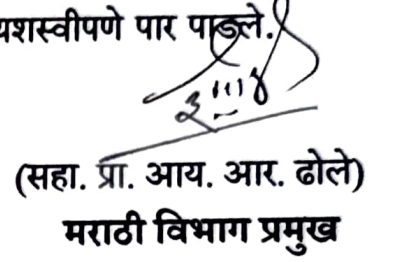 यशस्वीपणे पार पाडले.
(सहा. प्रा. आय. आर. ढोले)
मराठी विभाग प्रमुख